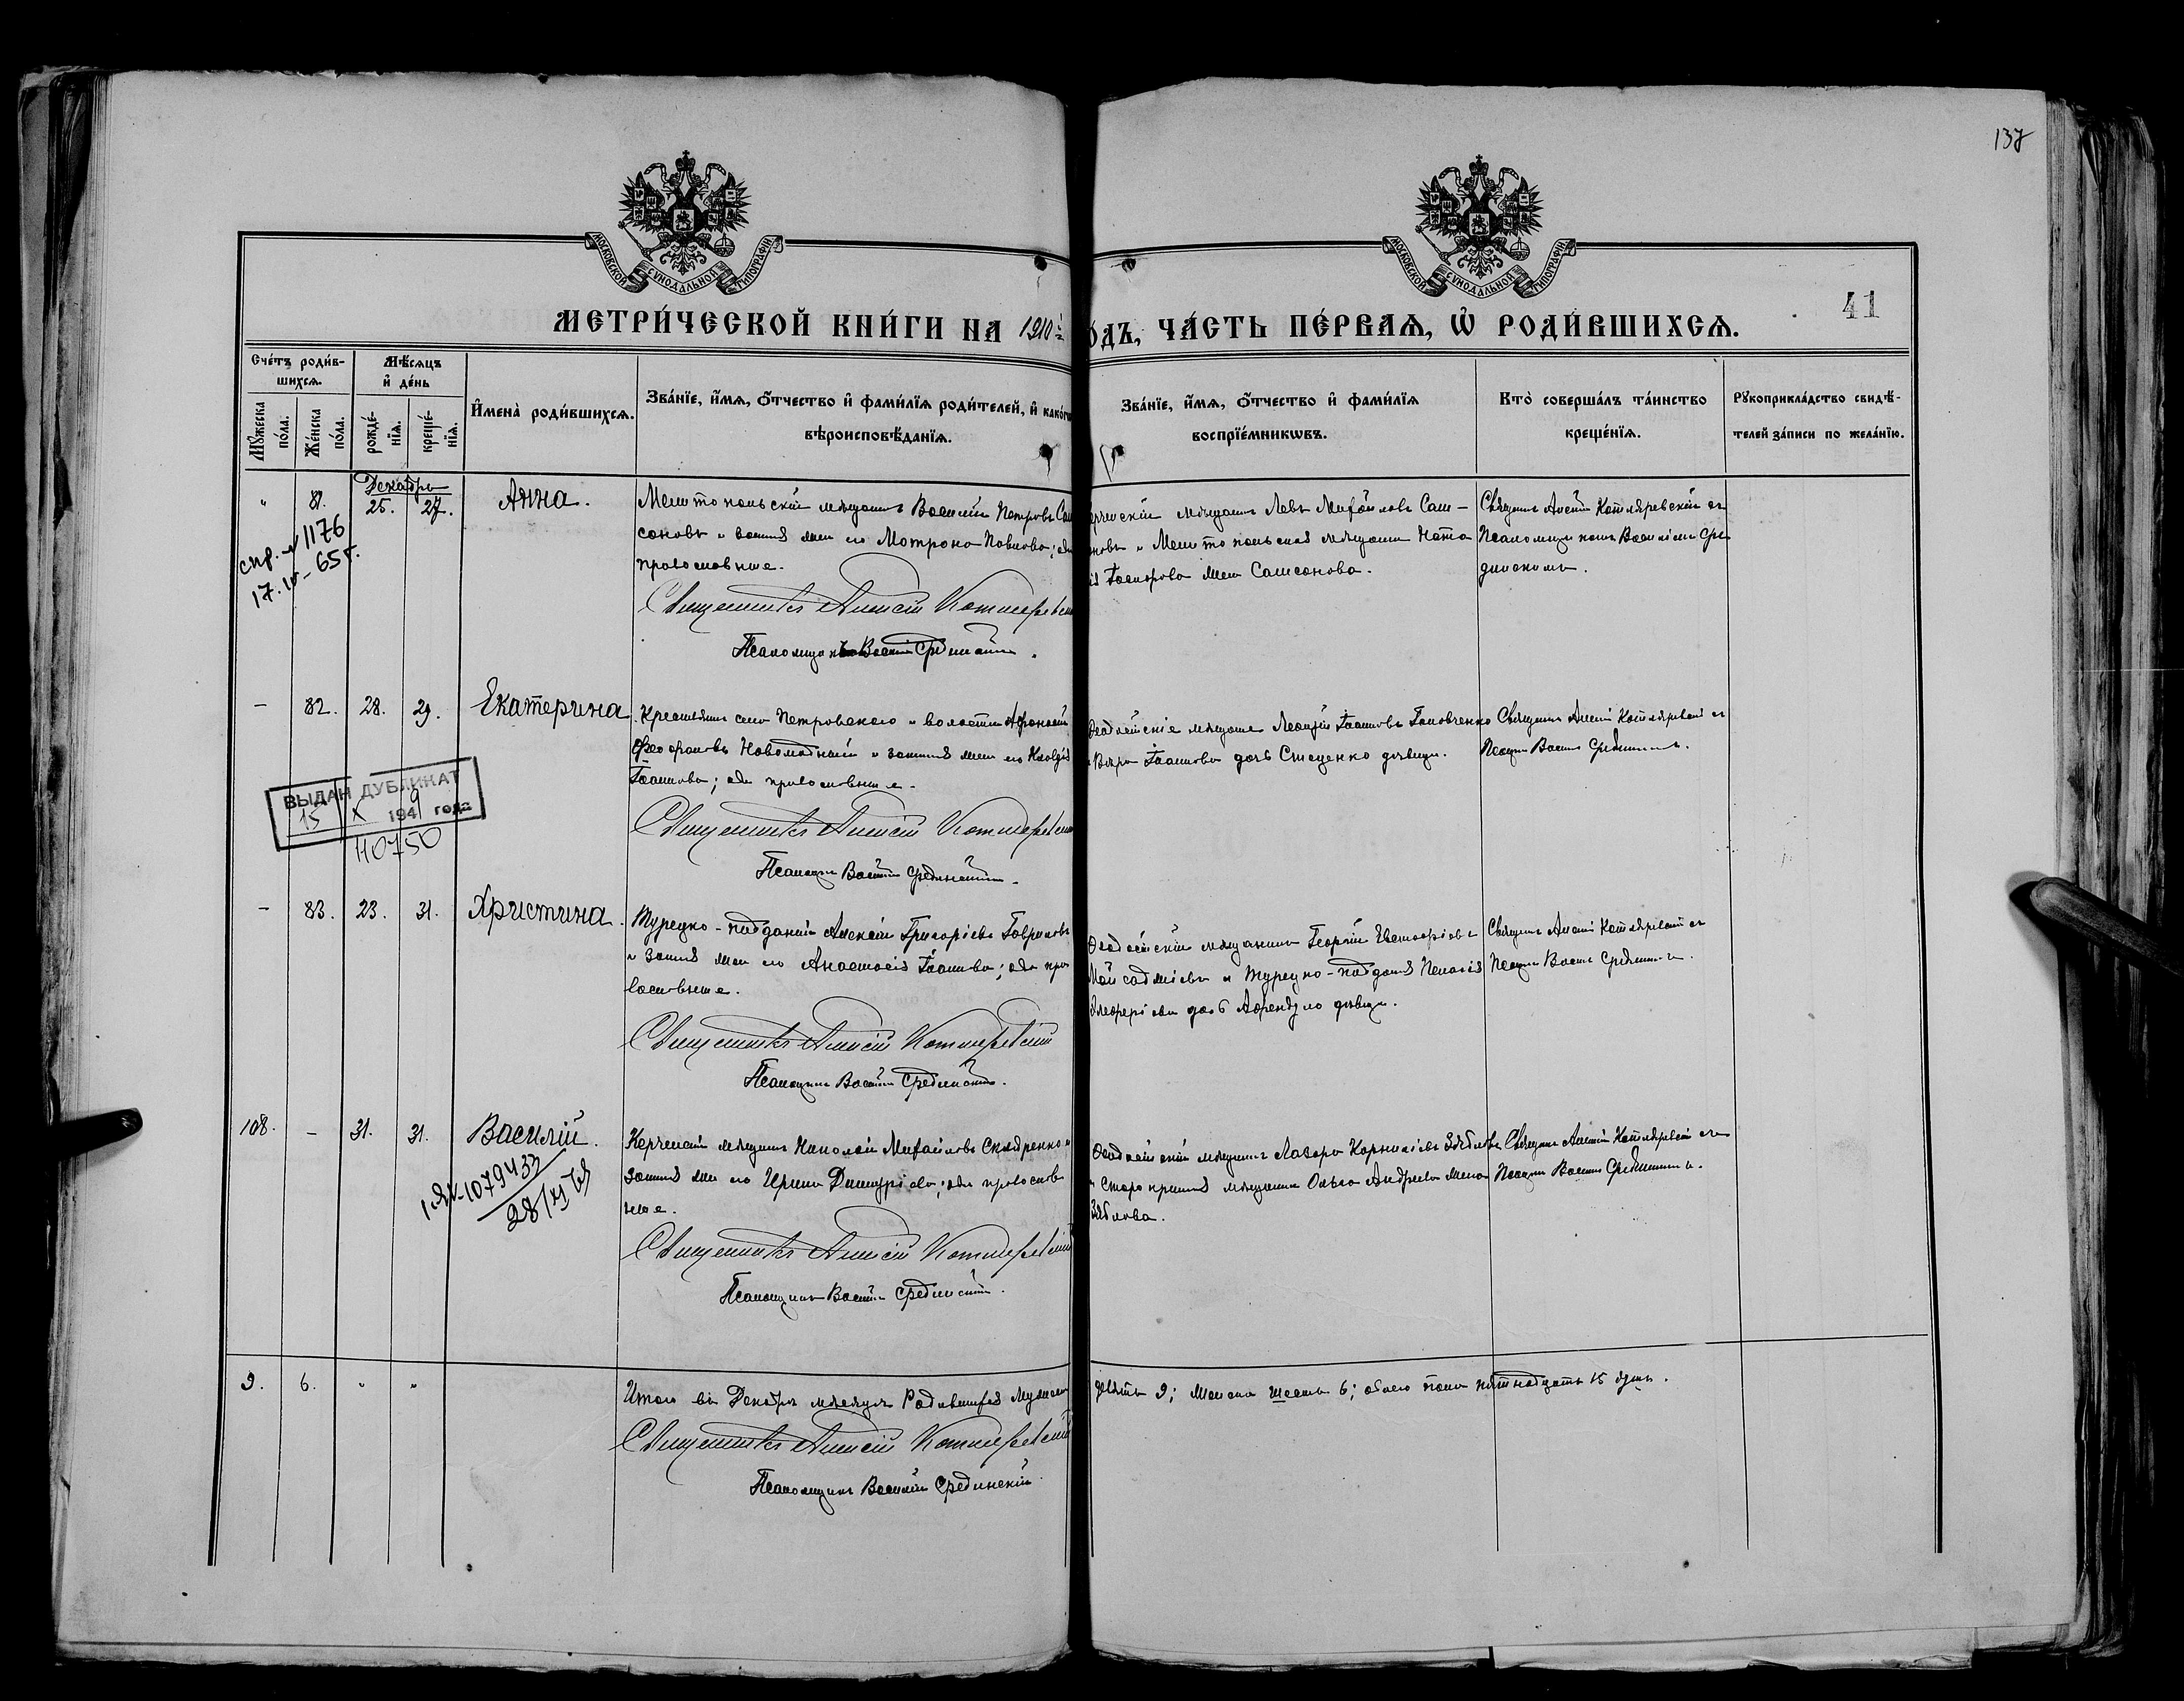 137
41
МОСКОВСКОЙ СѴНОДАЛЬНОЙ ТИПОГРАФІИ
МОСКОВСКОЙ СѴНОДАЛЬНОЙ ТИПОГРАФІИ
МЕТРИ́ЧЕСКОЙ КНИ́ГИ НА 1910
О́ДЪ, ЧА́СТЬ ПЕ́РВАѦ, Ѡ҆ РОДИ́ВШИХСѦ.
Сче́тъ роди́в-
шихсѧ.
Мꙋ́жеска по́ла.
Же́нска по́ла.
Мѣ́сѧцъ
и҆ де́нь
рожде́-
нїѧ.
креще́-
нїѧ.
И҆мена̀ роди́вшихсѧ.
Зва́нїе, и҆́мѧ, ѻ҆́тчество и҆ фами́лїѧ роди́телей, и҆ како́гѡ
вѣроисповѣ́данїѧ.
Зва́нїе, и҆́мѧ, ѻ҆́тчество и҆ фами́лїѧ
воспрїе́мникѡвъ.
Кто̀ соверша́лъ та́инство
креще́нїѧ.
Рꙋкоприкла́дство свидѣ́-
телей за́писи по жела́нїю.
Декабрь
" 81. 25. 27. Анна.
Мелитопольскій мѣщанинъ Василій Петровъ Сам
соновъ и законная жена его Матрона Павлова; оба
православные.
Священникъ Алексій Котляревскій
Псаломщикъ Василій Срединскій.
мѣщанинъ Левъ Михайловъ Сам-
новъ и Мелитопольская мѣщанка Ната
жена Самсонова.
Священникъ Алексій Котляревскій съ
Псаломщикомъ Василіемъ Сре
динскимъ.
спр. № 1176
17.IV-65г.
- 82. 28. 29. Екатерина.
Крестьянинъ села Петровскаго и волости Афанасій
Феофановъ Новохатній и законная жена его Клавдія
Іоаннова; оба православные.
Священникъ Алексій Котляревскій
Псаломщикъ Василій Срединскій.
Ѳеодосійскіе мѣщане Леонтій Іоанновъ Головченко
и Вѣра Іоаннова дочь Стеценко дѣвица.
Священникъ Алексій Котляревскій съ
Псаломщ. Василіемъ Срединскимъ.
ВЫДАН ДУБЛИКАТ
15 X 1949 года
110750
- 83. 23. 31. Христина.
Турецко-подданный Алексій Григоріевъ Гавриловъ
и законная жена его Анастасія Іоаннова; оба пра
вославные.
Священникъ Алексій Котляревскій
Псаломщикъ Василій Срединскій.
Ѳеодосійскій мѣщанинъ Георгій
и Турецко-подданная Пелагія
дочь дѣвица.
Священникъ Алексій Котляревскій съ
Псаломщ. Василіемъ Срединскимъ.
108. - 31. 31. Василій.
Керченскій мѣщанинъ Николай Михайловъ Скляренко и
законная жена его Ирина Димитріева; оба православ
ные.
Священникъ Алексій Котляревскій
Псаломщикъ Василій Срединскій.
Ѳеодосійскій мѣщанинъ Лазарь Корниліевъ Зябловъ
и Старокрымская мѣщанка Ольга Андреева жена
Зяблова.
Священникъ Алексій Котляревскій съ
Псаломщ. Василіемъ Срединскимъ.
1079433
9. 6. " "
Итого въ Декабрѣ мѣсяцѣ Родившихся Мужска
девять 9; Женска шесть 6; обоего пола пятнадцать 15 душъ.
Священникъ Алексій Котляревскій
Псаломщикъ Василій Срединскій